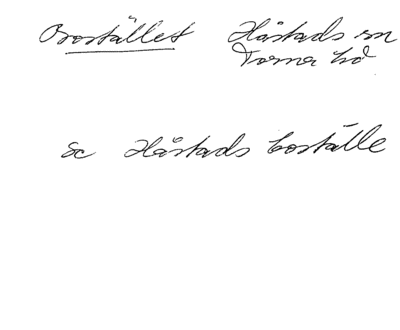 Bostället Håstads sn
Torna hd
se Håstads boställe